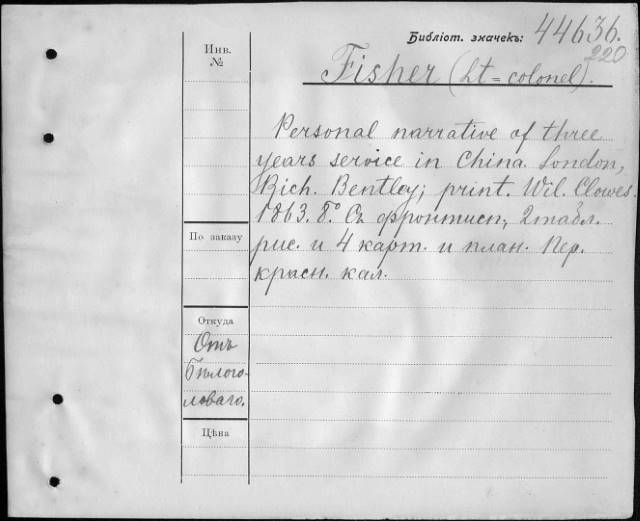 Библіот. значекъ: 44636.
220
Инв.
№
Fisher (Lt=colonel).
Personal narrative of three
years service in China. London,
Rich. Bentley; print. Wil. Clowes.
1863. 8.° Съ фронтисп., 2 табл.
рис. и 4 карт. и план. Пер.
красн. кал.
По заказу
Откуда
Отъ
Бѣлого-
ловаго.
Цѣна